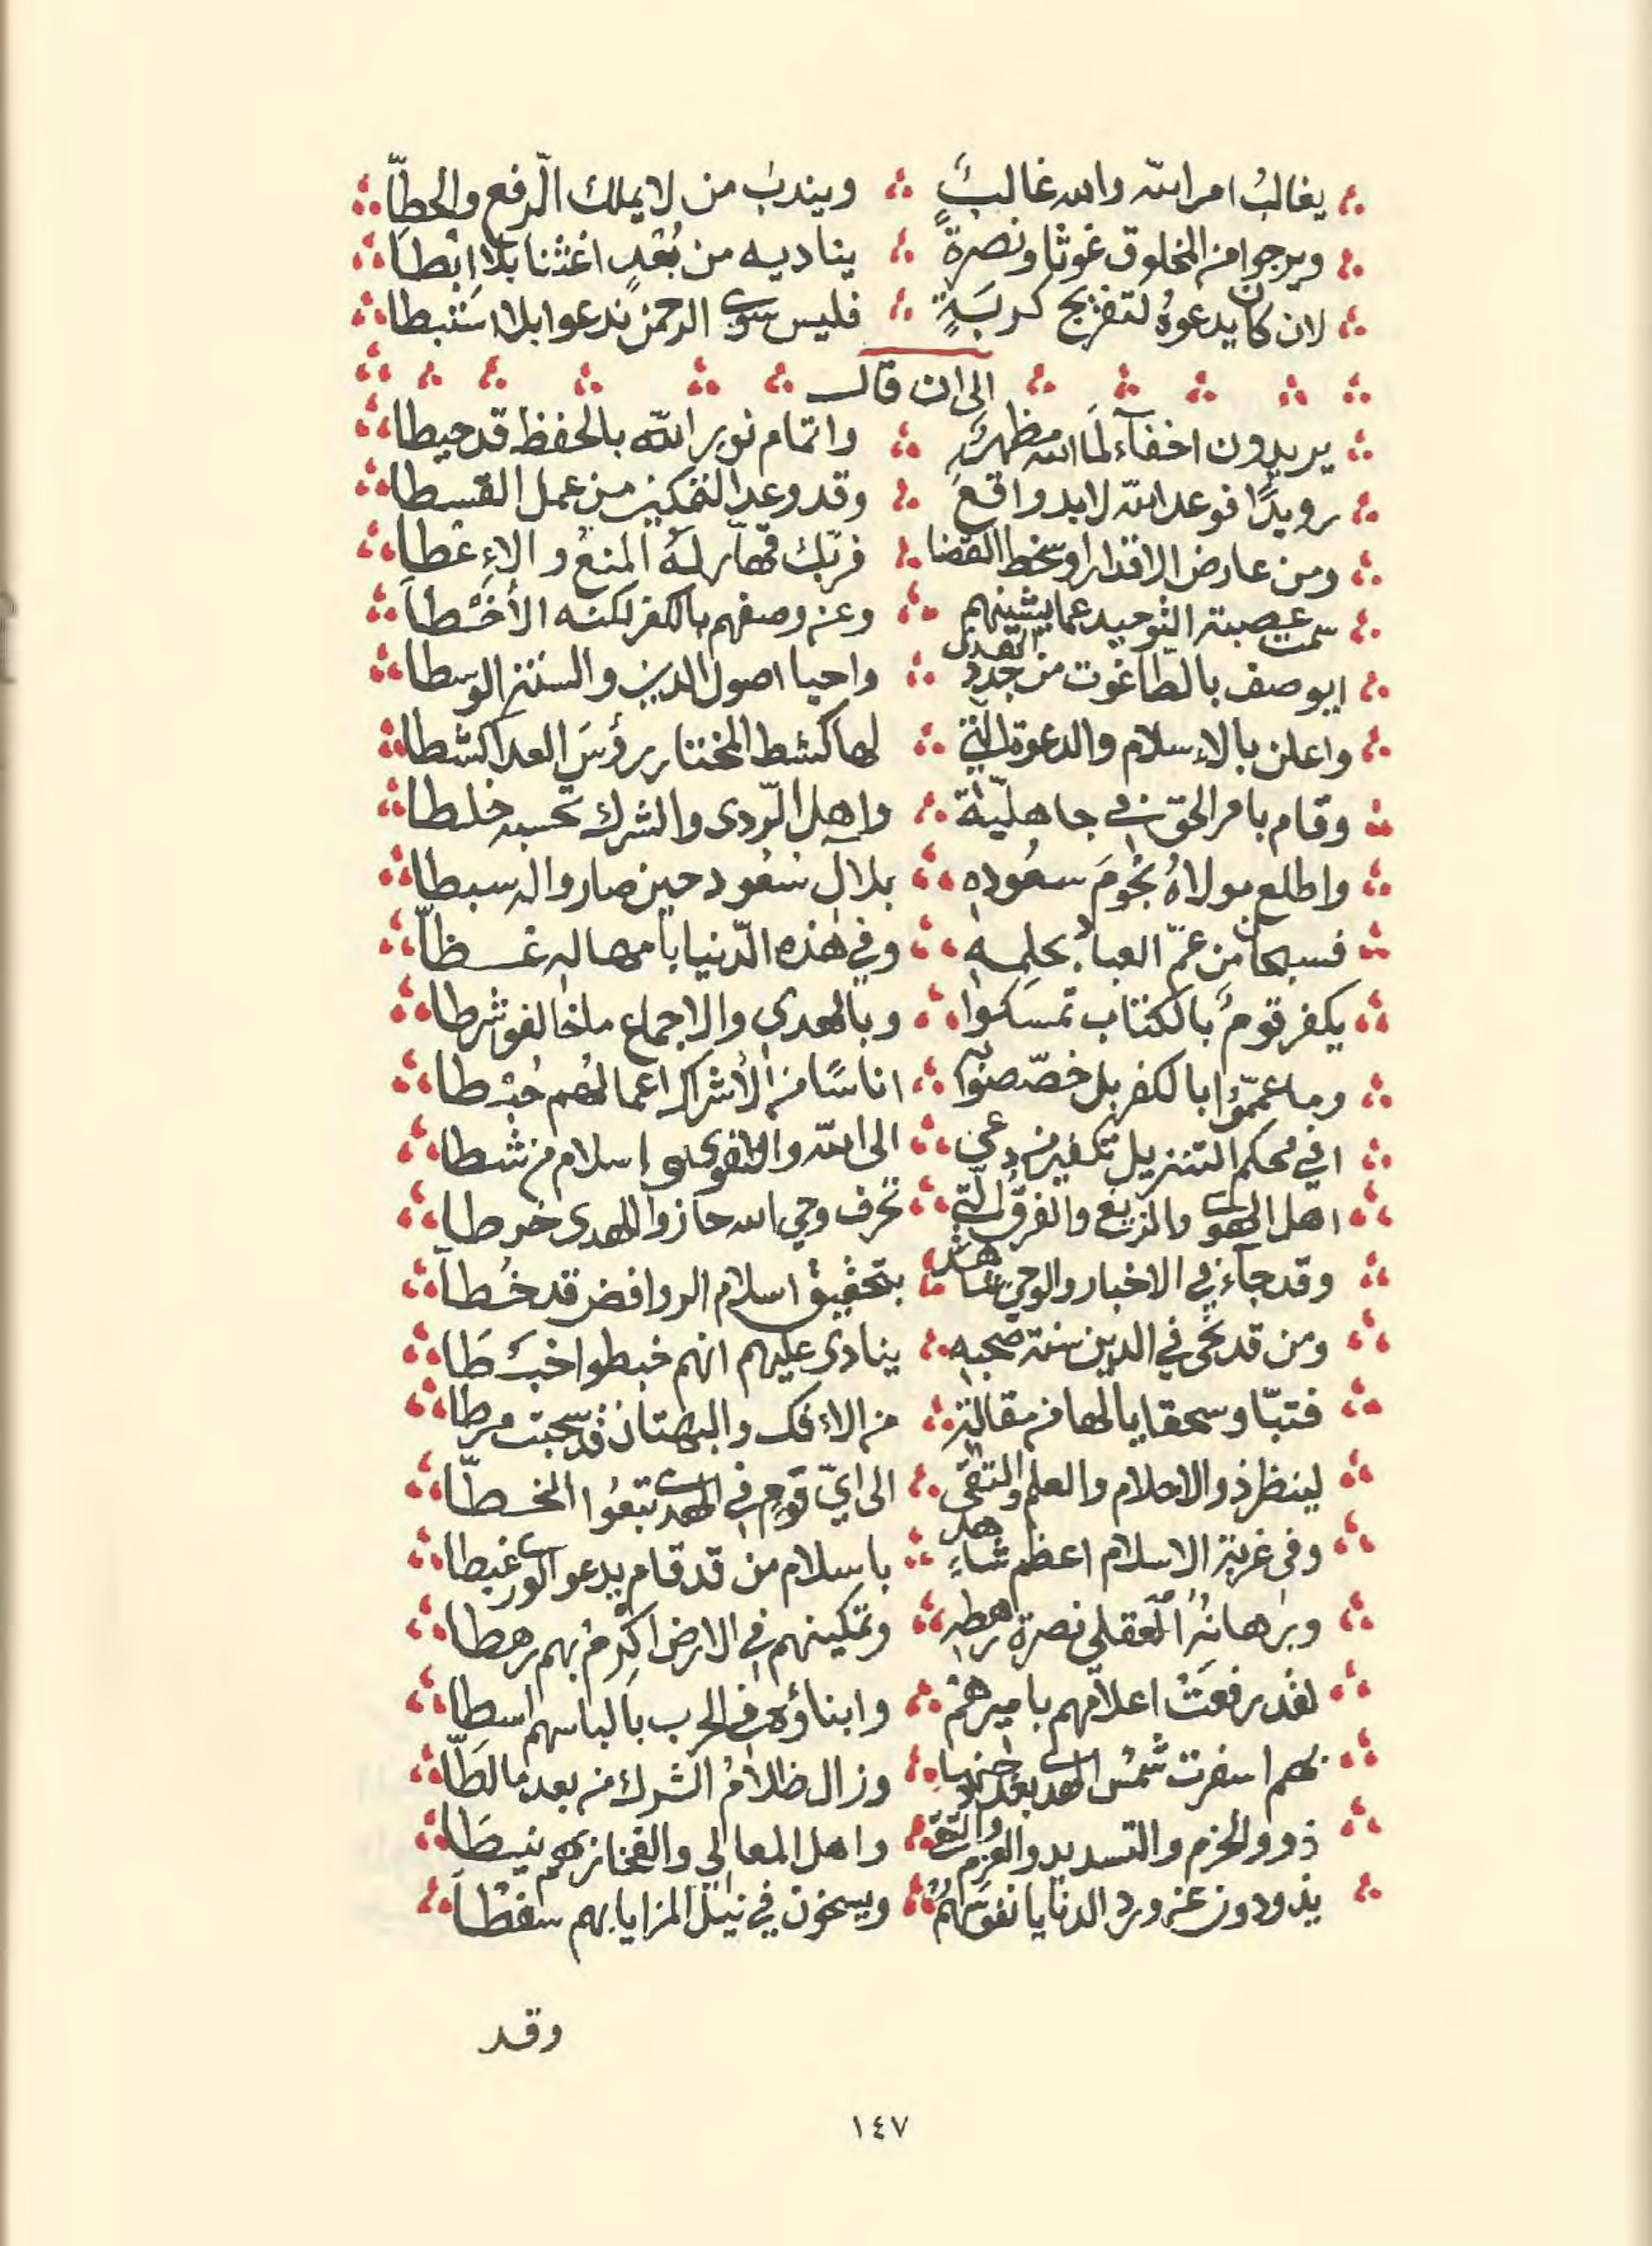 يغالبُ امر الله والله غالبٌ ويندبُ من لا يملك الرّفع والحطّا
ويرجوا من المخلوق غوثا ونصرة يناديه من بُعْدٍ اغثنا بلا ابْطا
لان كان يدعوهُ لتفريج كربَةٍ فليس سوى الرحمن ندعوا بلا استبطا
الى ان قال
يريدون اخفآء لمَا الله مظهرٌ واتمام نور الله بالحفظ قد حيطا
رويدًا فوعد الله لابد واقعٌ وقد وعد التمكين من عمل القسطا
ومن عارض الاقدار او سخط القضا فربّك قهّار لهُ المنعُ والإعْطا
سمت عصبة التوحيد عما يشينهم وعن وصفهم بالكفر لكنه الأخْطا
ايوصف بالطاغوت من جدد الهدى واحيا اصول الدين والسنن الوسطا
واعلن بالإسلام والدعوة التي لها كشط المختار رؤسَ العدا كشطا
وقام بامر الحق في جاهليّة واهل الرّدى والشرك تحسبه خلطا
واطلع مولاهُ نجُومَ سعُوده بلآل سُعُود حين صاروا له سبطا
فسبحان من عمّ العباد بحلمِه وفي هذه الدّنيا بامهاله غــظّا
يكفر قومٌ بالكتاب تمسكوا وبالهدى والاجماع ما خالفو شرطا
وما عمّموا بالكفر بل خصّصوا به اناسًا من الأشراك اعمالهُم حُبْطا
افي محكم التنزيل تكفير من دعى الى الله والتقوى و اسلام من شطا
اهل الهوى والزيغ والفرق التي تحرف وحي الله حازوا الهدى خرطا
وقد جآء في الاخبار والوحي شاهد بتحقيق اسلام الروافض قد خُطا
ومن قد نحى في الدين سنة صحبه ينادى عليهم انهم خبطوا خبْطَا
فتبّا وسحقا يا لها من مقالة من الافك والبهتان قد سحبت مرطا
لينظر ذو الاحلام والعلم والتقى الى ايّ قوم في الهدى تتبعُوا الخــطّا
وفي غربة الاسلام اعظم شاهد باسلام من قد قام يدعو الورى غبطا
وبرهانُهُ العقلي نصرة رهطه وتمكينهم في الارض اكرم بهم رهطا
لقد رفعَتْ اعلامهم باميرهمْ وابناؤه في الحرب بالباسهم اسطا
بهم اسفرت شمسُ الهدى بعد وزال ظلامُ الشرك من بعد ما لَطّا
ذوو الحزم والتسديد والعزم والتقى واهل المعالي والفخار بهم نيطَا
يذودون عن ورد الدنايا نفوسهُمْ ويسخون في نيل المزايا بهم سفْطاً
وقد
١٤٧